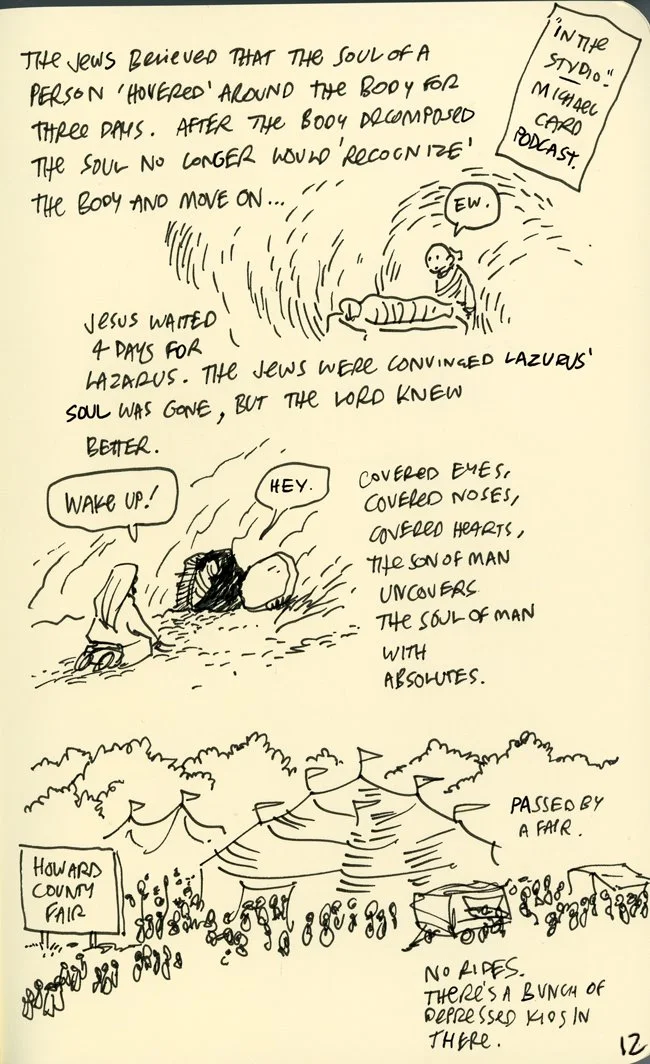 THE JEWS BELIEVED THAT THE SOUL OF A
PERSON 'HOVERED' AROUND THE BODY FOR
THREE DAYS. AFTER THE BODY DECOMPOSED
THE SOUL NO LONGER WOULD 'RECOGNIZE'
THE BODY AND MOVE ON...
"IN THE
STUDIO"
MICHAEL
CARD
PODCAST.
EW.
JESUS WAITED
4 DAYS FOR
LAZARUS. THE JEWS WERE CONVINCED LAZURUS'
SOUL WAS GONE, BUT THE LORD KNEW
BETTER.
WAKE UP!
HEY.
COVERED EYES,
COVERED NOSES,
COVERED HEARTS,
THE SON OF MAN
UNCOVERS
THE SOUL OF MAN
WITH
ABSOLUTES.
PASSED BY
A FAIR.
HOWARD
COUNTY
FAIR
NO RIDES.
THERE'S A BUNCH OF
DEPRESSED KIDS IN
THERE.
12